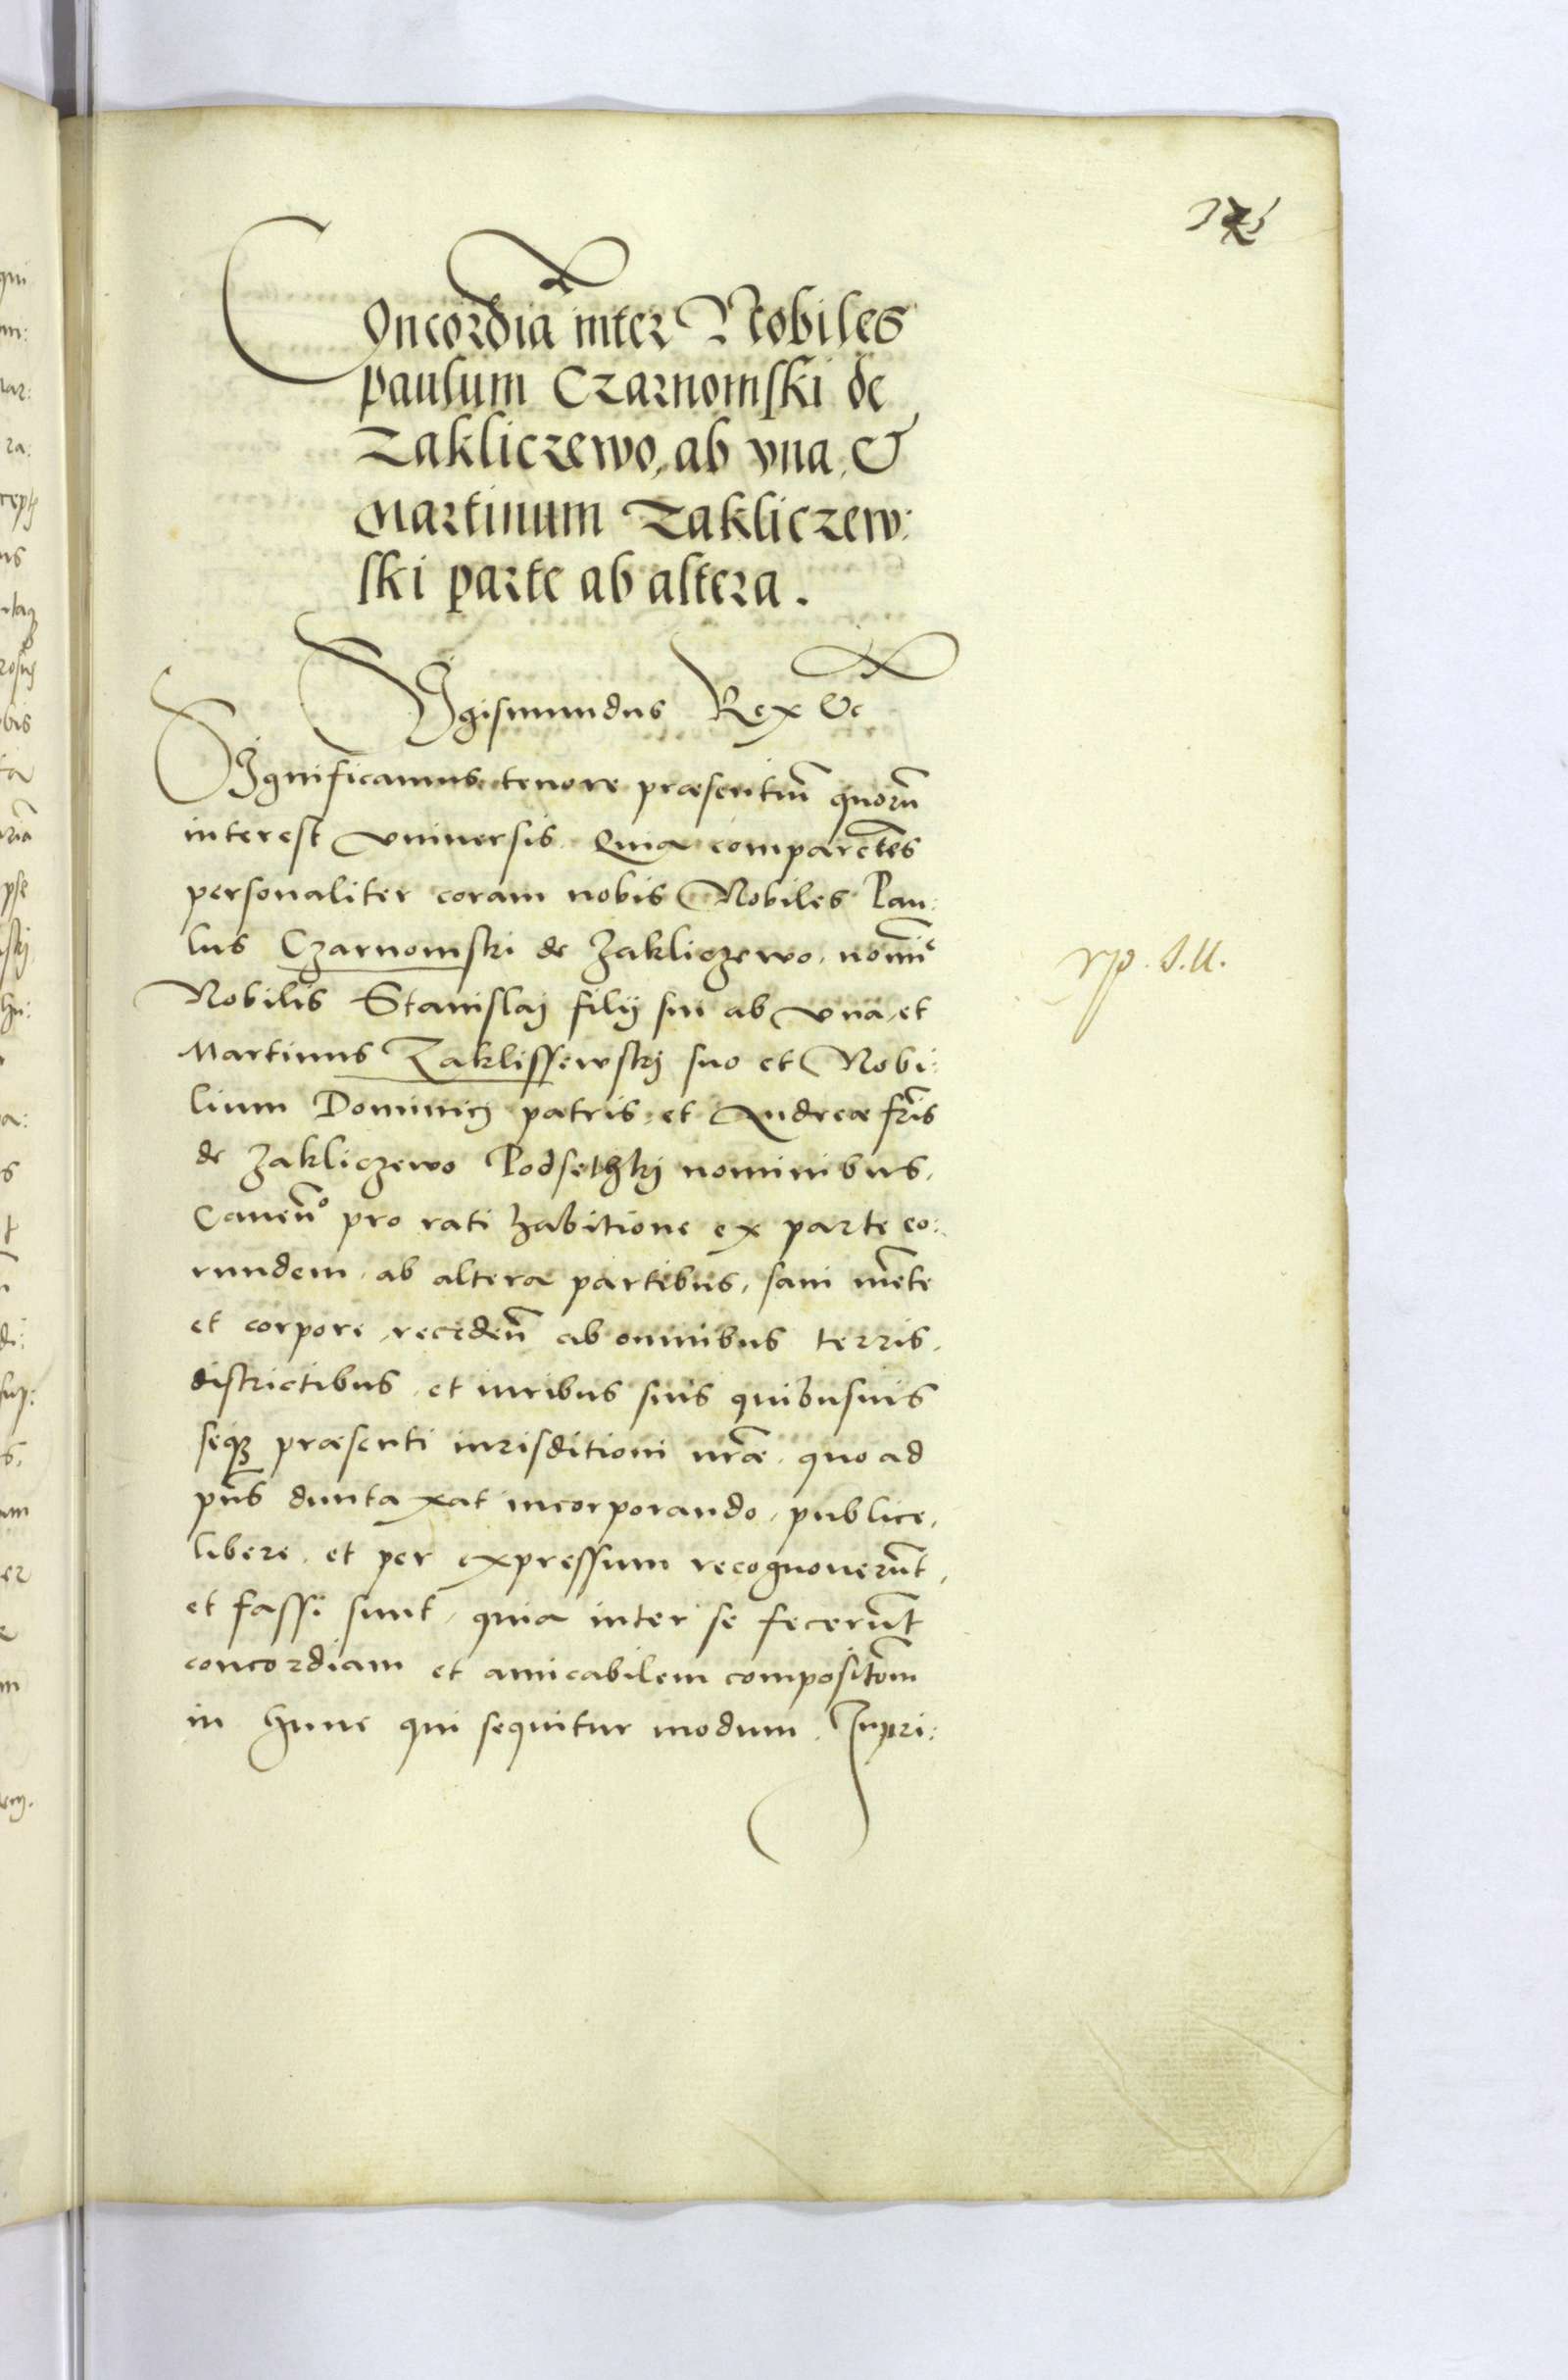 Concordia inter Nobiles
Paulum Czarnomski de
Zakliczewo, ab vna, &
Martinum Zakliczew:
ski parte ab altera.
Sigismundus Rex &c
Significamus tenore præsentiũ quorũ
interest vniuersis. Quia comparẽtes
personaliter coram nobis Nobiles Pau:
lus Czarnomski de Zakliczewo, nomĩe
Nobilis Stanislaj filij sui ab vna, et
Martinus Zaklissewskj suo et Nobi:
lium Dominicj patris, et Andreæ fr̃is
de Zakliczewo Podsethkj nominibus,
Cauen̄o pro rati habitione ex parte eo:
rundem, ab altera partibus, sani mẽte
et corpore, receden̄ ab omnibus terris,
districtibus, et iuribus suis quibusuis
seqz præsenti iurisditioni nr̃æ, quo ad
pñs duntaxat incorporando, publice,
libere, et per expressum recognouerũt,
et fassi sunt, quia inter se fecerũt
concordiam et amicabilem compositõm
in hunc qui sequitur modum. Inpri: